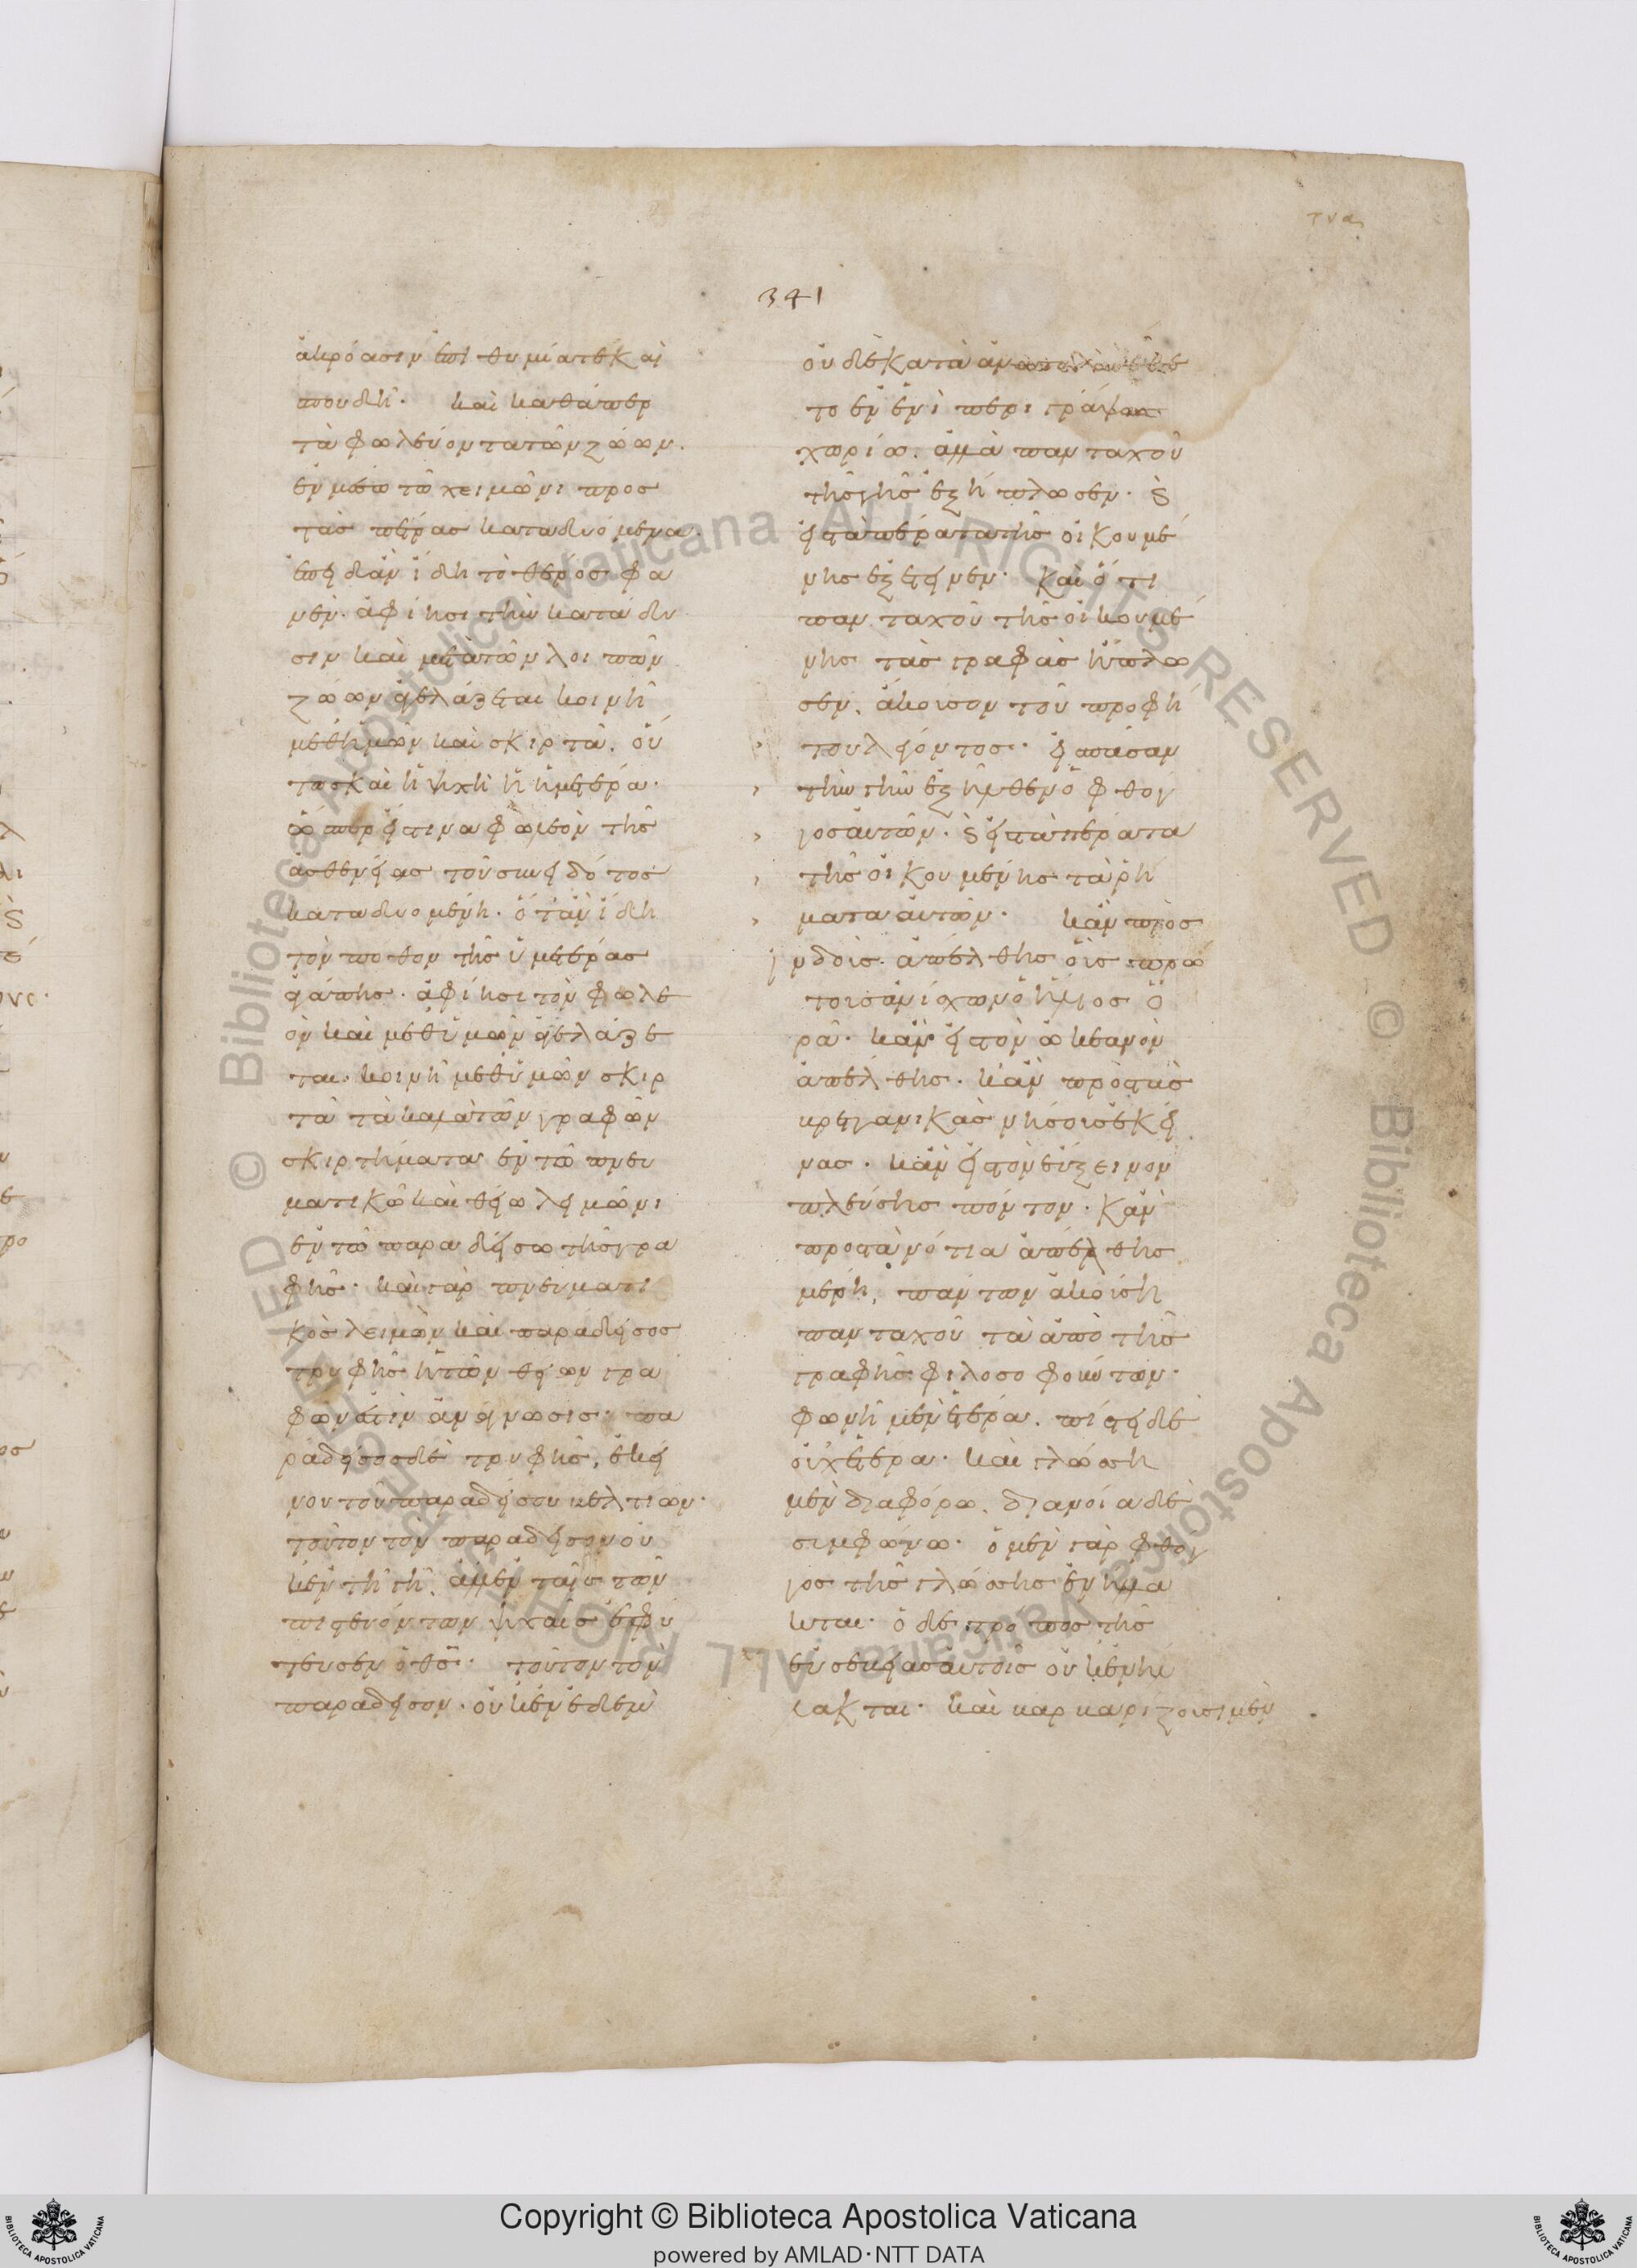 τνα
341
ἀκρόασιν ἐπιθυμίατε καὶ
σπουδῆ. καὶ καθάπερ
τὰ φωλεύοντα τῶν ζώων.
ἐν μέσω τῶ χειμῶνι πρὸς
τὰς πέτρας καταδυόμενα.
ἐπειδὰν ἴδη τὸ θέρος φα
νὲν. ἀφίησι τὴν κατάδυ
σιν καὶ μετὰ τῶν λοιπῶν
ζώων ἀγελάζεται κοινῆ
μεθημῶν καὶ σκιρτᾶ. οὕ
τω καὶ ἡ ψυχὴ ἡ ἡμετέρα.
ὥσπερ εἴς τινα φωλεὸν τῆς
ἀσθενείας τοῦ συνειδότος
καταδυομένη. ὅταν ἴδη
τὸν πόθον τῆς ὑμετέρας
ἀγάπης. ἀφίησι τὸν φωλε
ὸν καὶ μεθὑμῶν ἀγελάζε
ται. κοινῆ μεθὑμῶν σκιρ
τᾶ τὰ καλὰ τῶν γραφῶν
σκιρτήματα ἐν τῶ πνευ
ματικῶ καὶ θείω λειμῶνι
ἐν τῶ παραδείσω τῆς γρα
φῆς. καὶ γὰρ πνευματι
κὸς λειμὼν καὶ παράδεισος
τρυφῆς ἡ τῶν θείων γρα
φῶν ἐστὶν ἀνάγνωσις. πα
ράδεισος δὲ τρυφῆς, ἐκεί
νου τοῦ παραδείσου βελτίων.
τοῦτον τὸν παράδεισον οὐ
κἐν τῆ γῆ. ἀλλἐν ταῖς τῶν
πιστευόντων ψυχαῖς ἐφύ
τευσεν ὁ θς. τοῦτον τὸν
παράδεισον. οὐκ ἐν ἐδὲμ
οὐδὲ κατὰ ἀνατολὰς ἔθε
το ἐν ἑνὶ περιγράψας
χωρίω. ἀλλὰ πανταχοῦ
τῆς γῆς ἐξήπλωσεν. καὶ
εἰς τὰ πέρατα τῆς οἰκουμέ
νης ἐξέτεινεν. καὶ ὅτι
πανταχοῦ τῆς οἰκουμέ
νης τὰς γραφὰς ἥπλω
σεν. ἄκουσον τοῦ προφή
του λέγοντος. εἰς πᾶσαν
τὴν γῆν ἐξῆλθεν ὁ φθόγ
γος αὐτῶν. καὶ εἰς τὰ πέρατα
τῆς οἰκουμένης τὰ ῥή
ματα αὐτῶν. κἂν πρὸς
ινδοὺς ἀπέλθης οὓς πρώ
τους ἀνίσχων ὁ ἥλιος ὁ
ρᾶ. κἂν εἰς τὸν ὠκεανὸν
ἀπέλθης. κἂν πρὸς τὰς
βρετανικὰς νήσους ἐκεί
νας. κἂν εἰς τὸν εὔξεινον
πλεύσης πόντον. κἂν
πρὸς τὰ νότια ἀπέλθης
μέρη, πάντων ἀκούση
πανταχοῦ τὰ ἀπὸ τῆς
γραφῆς φιλοσοφούντων.
φωνῆ μὲν ἑτέρα. πίστει δὲ
οὐχ ἑτέρα. καὶ γλώσση
μὲν διαφόρω. διανοία δὲ
συμφώνω. ὁ μὲν γὰρ φθόγ
γος τῆς γλώσσης ἐνήλλα
κται. ὁ δὲ τρόπος τῆς
εὐσεβείας αὐτοῖς οὐκ ἐνήλ
λακται. καὶ βαρβαρίζουσι μὲν